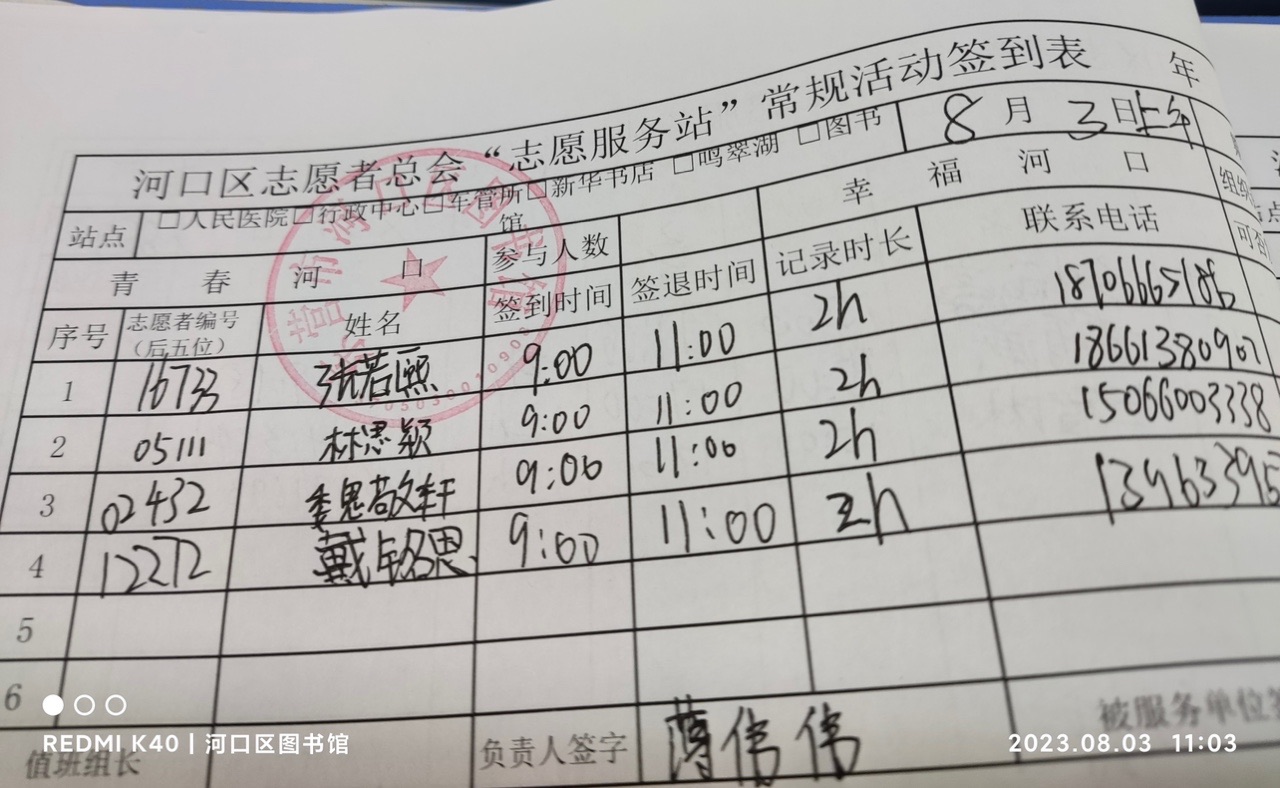 河口区志愿者总会“志愿服务站”常规活动签到表
年 8月3日上午
站点 □人民医院□行政中心□车管所□新华书店 □鸣翠湖 □图书馆
青春河口 参与人数 幸福河口
序号 志愿者编号（后五位） 姓名 签到时间 签退时间 记录时长 联系电话
1 16733 张若熙 9:00 11:00 2h 18706665186
2 05111 林思颖 9:00 11:00 2h 18661380907
3 02432 9:00 11:00 2h 15066003338
4 12272 戴铭恩 9:00 11:00 2h 13963395
5
6
值班组长 负责人签字 薄伟伟 被服务单位
REDMI K40 | 河口区图书馆
2023.08.03 11:03